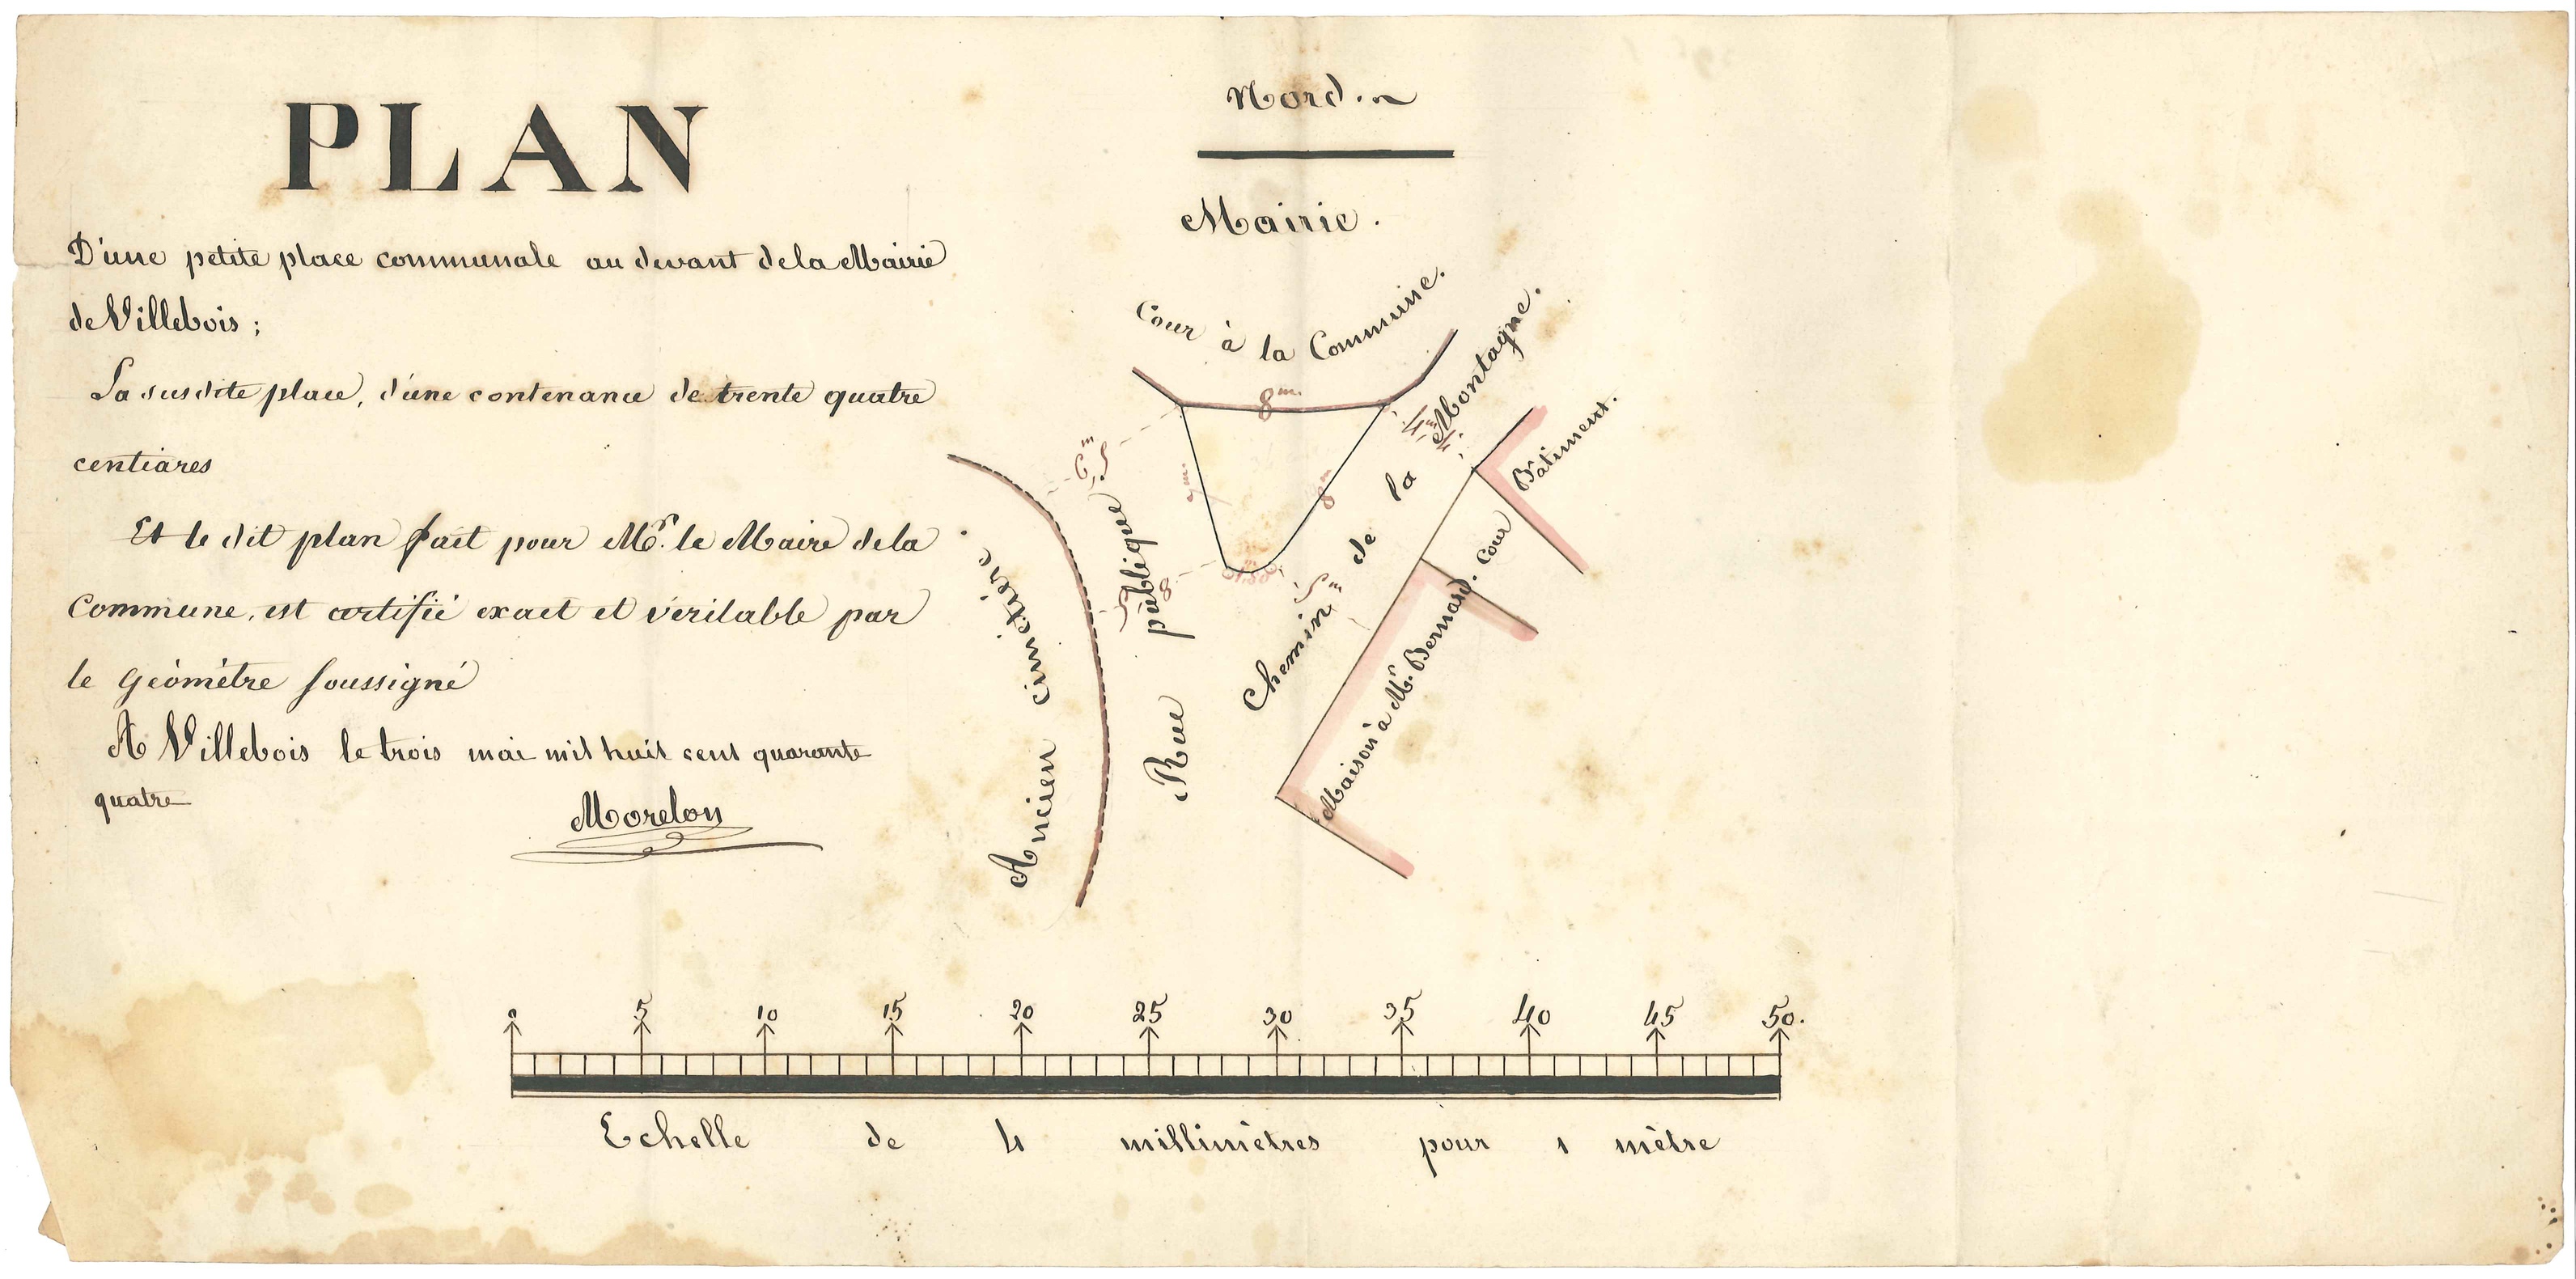 PLAN
D'une petite place communale au devant de la Mairie
de Villebois ;
La susdite place, d'une contenance de trente quatre
centiares
Et le dit plan fait pour Mr. le Maire de la
Commune, est certifié exact et véritable par
le Géomètre soussigné
A Villebois le trois mai mil huit cent quarante
quatre
Morelon
Nord.
Mairie.
Cour à la Commune.
8m.
7m.
8m
5m
Chemin de la Montagne.
Bâtiment.
Cour
Maison à Mr. Bernard.
Rue publique
Ancien cimetière.
0 5 10 15 20 25 30 35 40 45 50.
Echelle de 4 millimètres pour 1 mètre